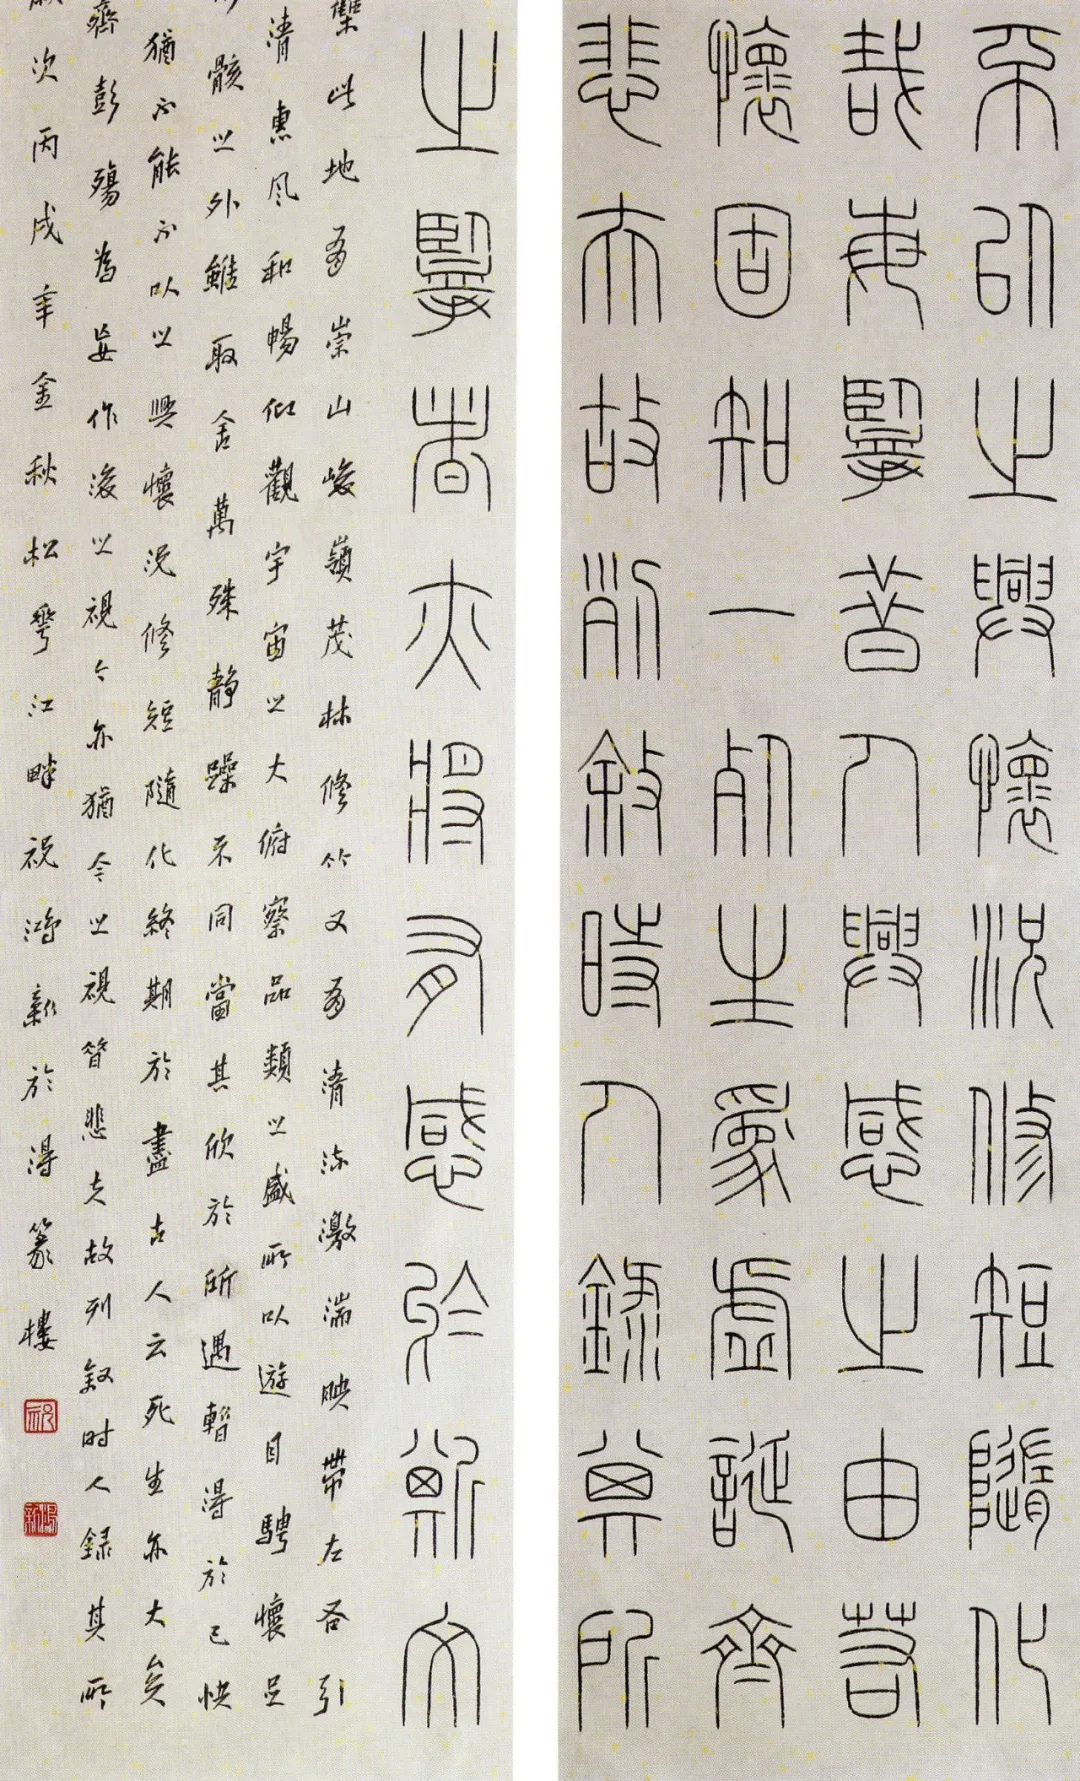 不以之興懷況修短隨化
哉每擥昔人興感之由若
懷固知一死生為虛誕齊
悲夫故列敘時人錄其所
之擥者亦將有感於斯文
集此地有崇山峻嶺茂林修竹又有清流激湍映帶左右引
清惠風和暢仰觀宇宙之大俯察品類之盛所以遊目騁懷足
骸之外雖取舍萬殊靜躁不同當其欣於所遇暫得於己快
猶不能不以之興懷況修短隨化終期於盡古人云死生亦大矣
齊彭殤為妄作後之視今亦猶今之視昔悲夫故列叙時人録其所
歲次丙戌年金秋松花江畔祝鴻新於得篆樓
祝
鴻新